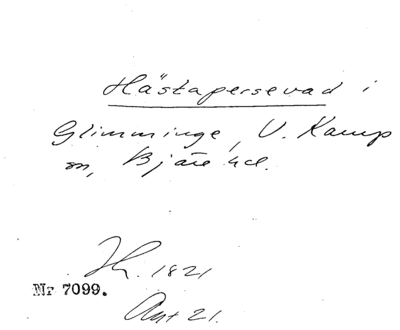 Hästapersevad i
Glimminge, V. Karup
sn, Bjäre hd.
Jh. 1821
Nr 7099.
Ant 21.